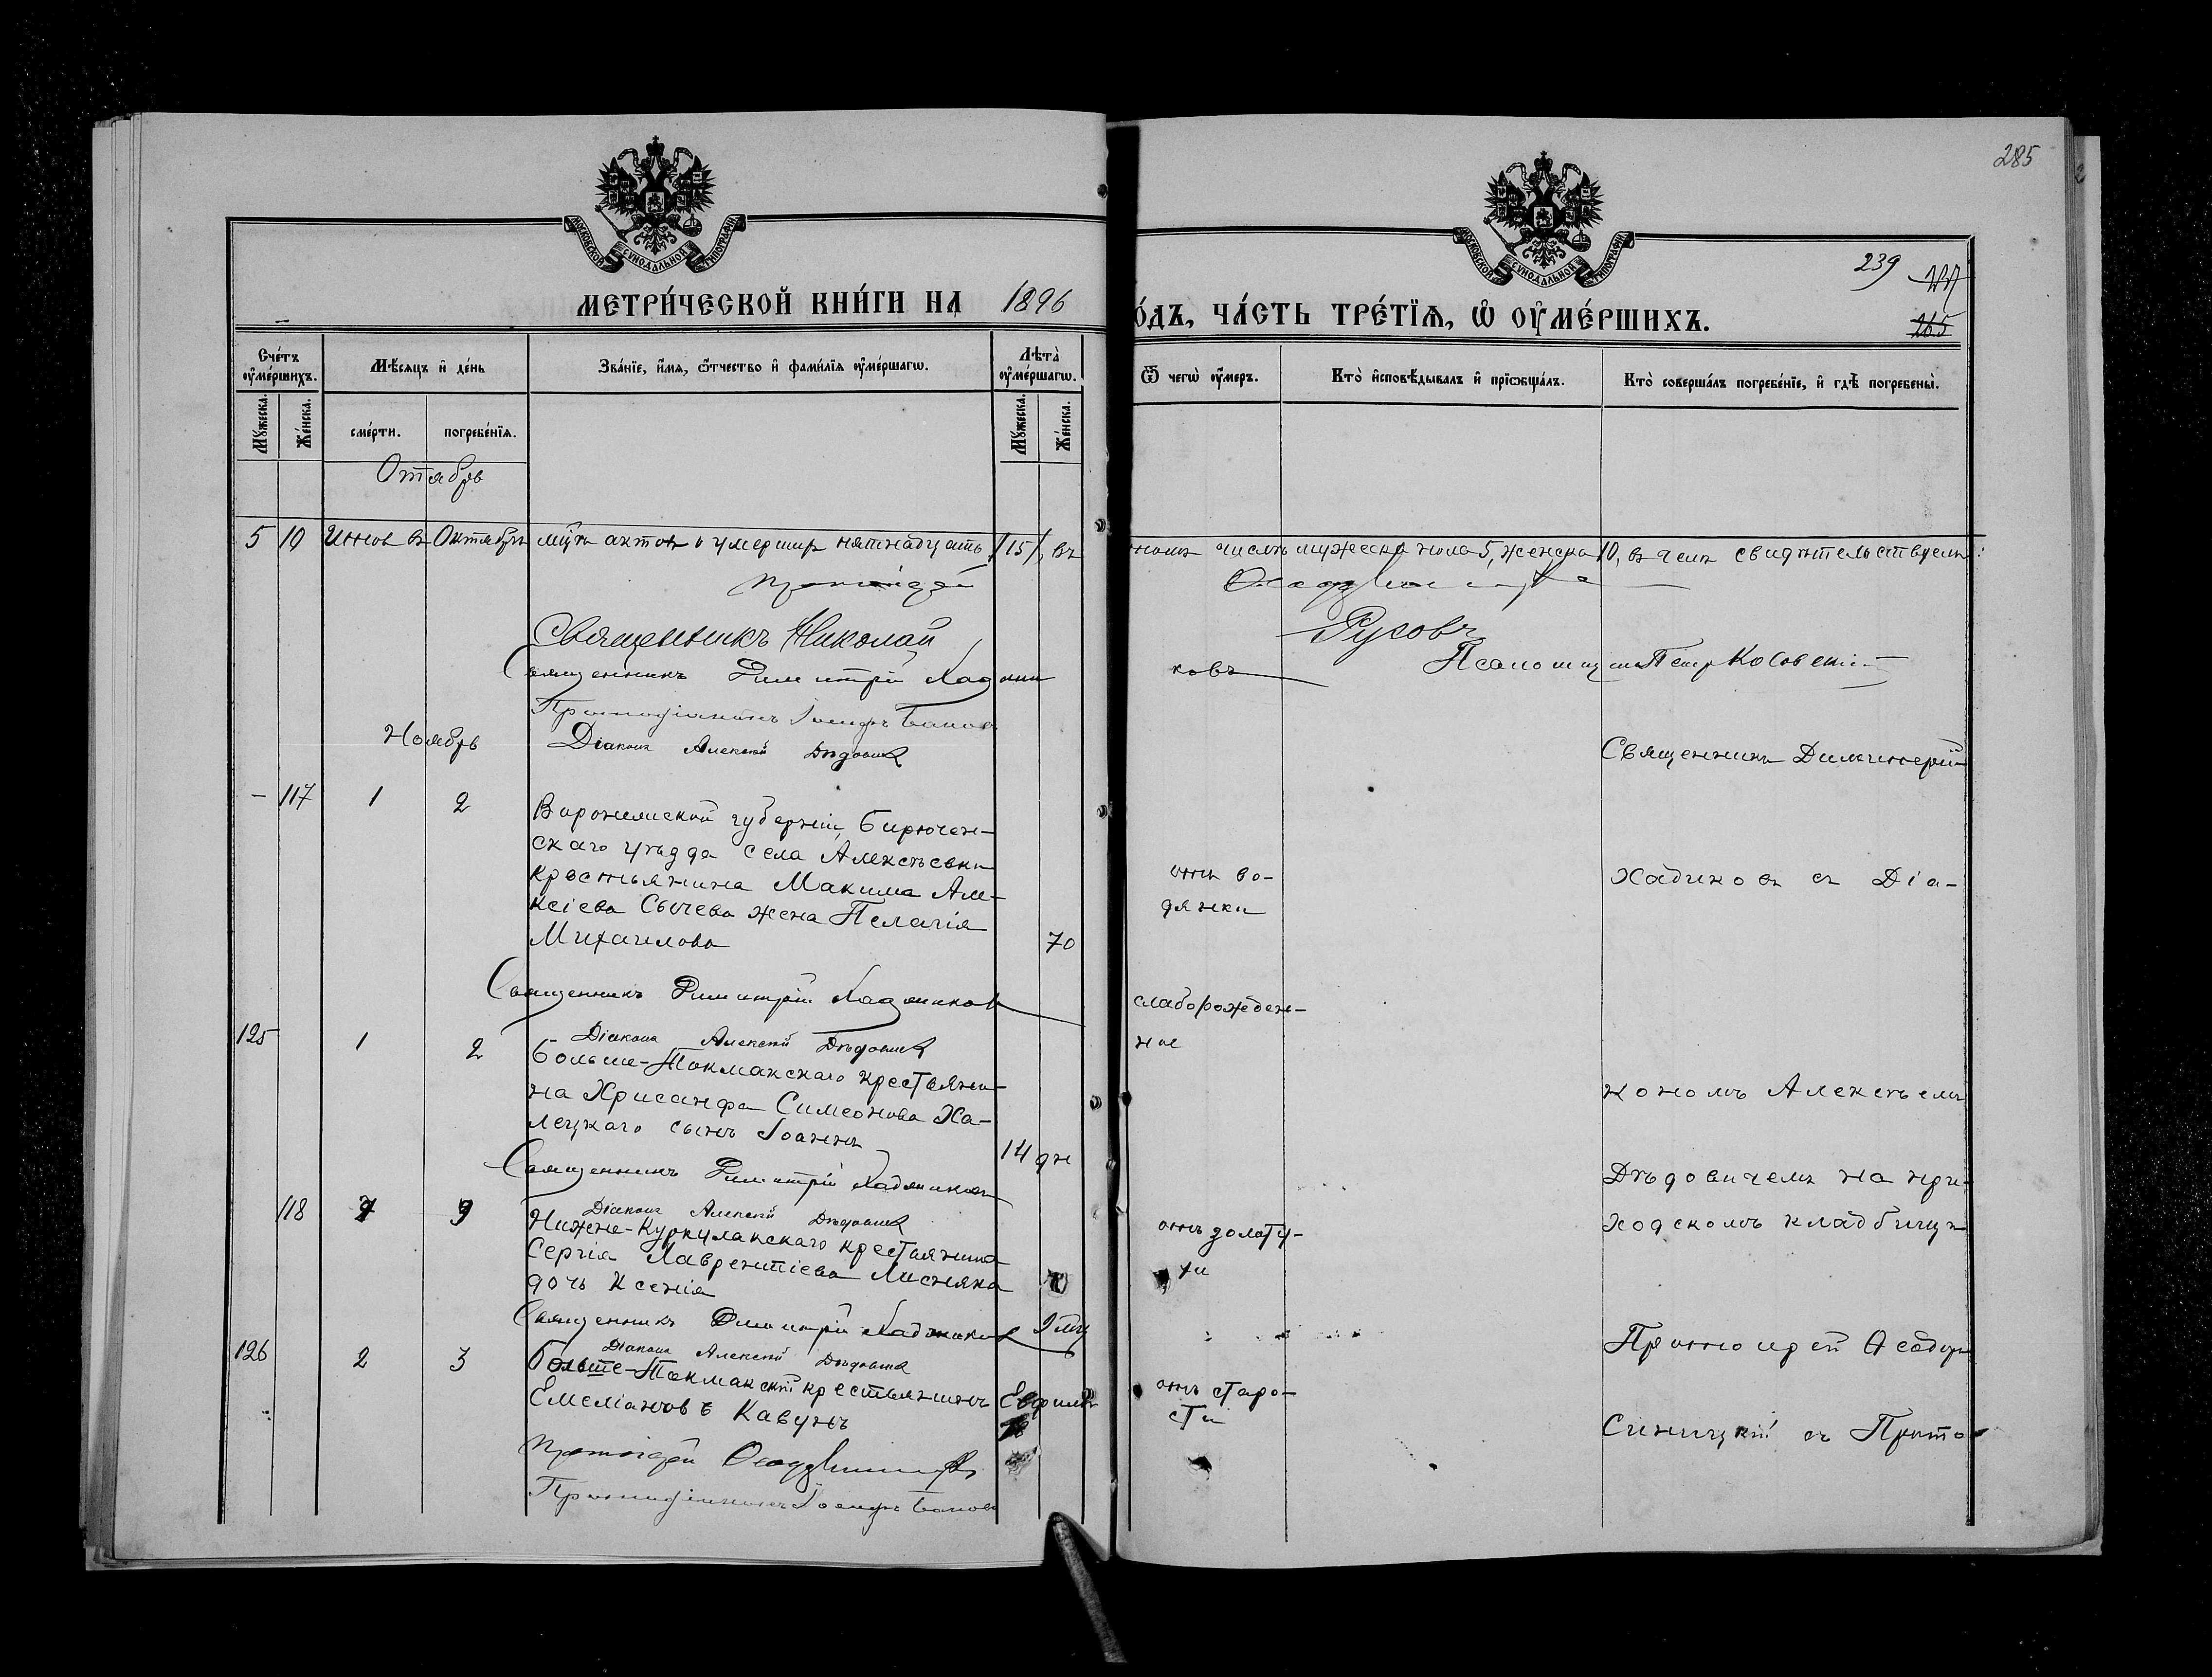 285
МОСКОВСКОЙ СѴНОДАЛЬНОЙ ТИПОГРАФІИ
МОСКОВСКОЙ СѴНОДАЛЬНОЙ ТИПОГРАФІИ
239
265
МЕТРИ́ЧЕСКОЙ КНИ́ГИ НА 1896
О́ДЪ, ЧА́СТЬ ТРЕ́ТЇѦ, Ѽ ОУМЕ́РШИХЪ.
Сче́тъ оумершихъ.
Мꙋжеска.
Же́нска.
Мѣ́сяцъ и де́нь
сме́рти.
погребе́нїѧ.
Зва́нїе, и́мѧ, ѻ́тчество и фами́лїѧ оуме́ршагѡ.
Лѣта̀ оуме́ршагѡ.
Мꙋжеска.
Же́нска.
Ѿ чегѡ̀ оу́меръ.
Кто̀ исповѣ́дывалъ и прїѡбща́лъ.
Кто̀ соверша́лъ погребе́нїе, и гдѣ̀ погребены̀.
Отябрь
5 10 Итого въ Октябрѣ умершихъ пятнадцать /15/, въ
числѣ мужеска пола 5, женска 10, въ чемъ свидѣтельствуемъ:
Протоіерей
Священникъ Николай
Русовъ
Священникъ Димитрій Хаджи
ковъ
Псаломщикъ Петръ Косовскій
Протодіаконъ Іосифъ Баковъ
Ноябрь
Діаконъ Алексѣй Дѣдовичъ
Священникъ Димитерій
– 117 1 2
Воронежской губерніи, Бирючен-
скаго уѣзда села Алексѣевки
крестьянина Максима Але-
ксіева Сычева жена Пелагія
Михаилова
70
отъ во-
дянки
Хаджиковъ съ Діа-
Священникъ Димитрій Хаджиковъ
слаборожден-
ное
125 1 2
Діаконъ Алексѣй Дѣдовичъ
Больше-Токмакскаго крестьяни-
на Хрисанфа Симеонова Ха-
лецкаго сынъ Іоаннъ
14 дн
кономъ Алексѣемъ
Священникъ Димитрій Хаджиковъ
Дѣдовичемъ на при-
118 7 9
Діаконъ Алексѣй Дѣдовичъ
Нижне-Куркулакскаго крестьянина
Сергія Лаврентіева Лисняка
дочь Ксенія
отъ золоту-
хи
ходскомъ кладбищѣ
Священникъ Димитрій Хаджиковъ
126 2 3
Діаконъ Алексѣй Дѣдовичъ
Больше-Токмакскій крестьянинъ Евфимъ
Емеліановъ Кавунъ
отъ старо-
сти
Протоіерей Ѳеодоръ
Синицкій съ Прото-
Протоіерей
Протодіаконъ Іосифъ Баковъ